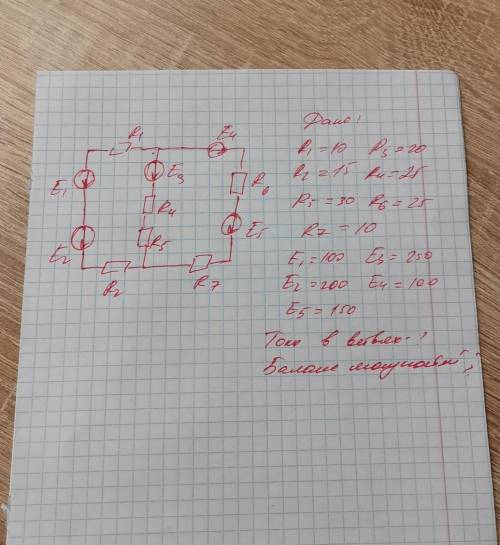 R1
E4
E3
E1
R6
R4
E5
R5
E2
R2
R7
Дано:
R1 = 10 R3 = 20
R2 = 15 R4 = 25
R5 = 30 R6 = 25
R7 = 10
E1 = 100 E3 = 250
E2 = 200 E4 = 100
E5 = 150
Токи в ветвях - ?
Баланс мощностей - ?